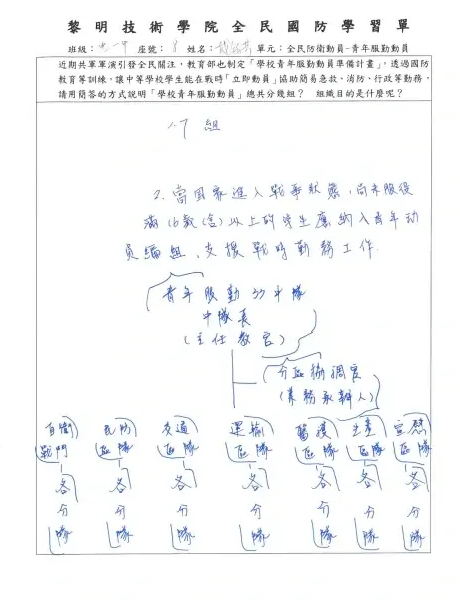 黎明技術學院全民國防學習單
班級： 座號：8 姓名： 單元：全民防衛動員-青年服勤動員
近期共軍軍演引發全民關注，教育部也制定「學校青年服勤動員準備計畫」，透過國防
教育等訓練，讓中等學校學生能在戰時「立即動員」協助簡易急救、消防、行政等勤務，
請用簡答的方式說明「學校青年服勤動員」總共分幾組？ 組織目的是什麼呢？
1.7 組
2. 當國家進入戰爭狀態，尚未服役
滿16歲(含)以上的學生應納入青年動
員編組，支援戰時勤務工作.
青年服勤 中隊
中隊長
(主任教官)
分區 調度
(業務承辦人)
自衛 民防 交通 運輸 醫護 生產 宣慰
戰鬥 區隊 區隊 區隊 區隊 區隊 區隊
各 各 各 各 各 各 各
分 分 分 分 分 分 分
隊 隊 隊 隊 隊 隊 隊